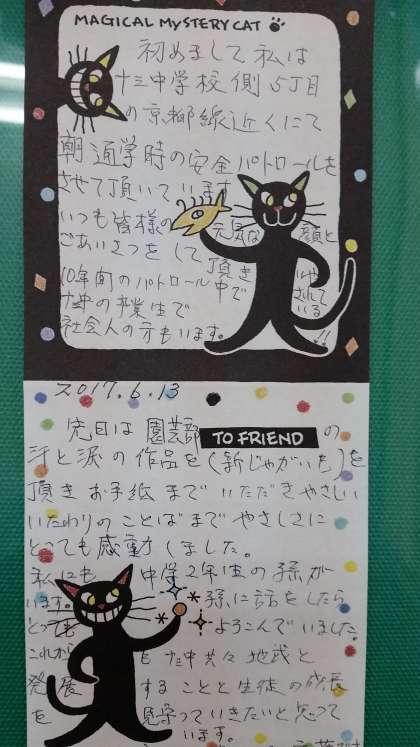 MAGICAL MYSTERY CAT
初めまして私は
十三中学校側5丁目
の京都線近くにて
朝通学時の安全パトロールを
させて頂いています
いつも皆様の元気な顔と
ごあいさつをして頂き
いやされている!!
10年間のパトロール中で
十三中の卒業生で
社会人の方もいます。
2017.6.13
先日は園芸部の
TO FRIEND
汗と涙の作品を(新じゃがいも)を
頂きお手紙までいただきやさしい
いたわりのことばまでやさしさに
とっても感動しました。
私にも中学2年生の孫が
います。孫に話をしたら
とってもよろこんでいました。
これからも十三中共々地域と
発展することと生徒の成長
を見守っていきたいと思って
います。